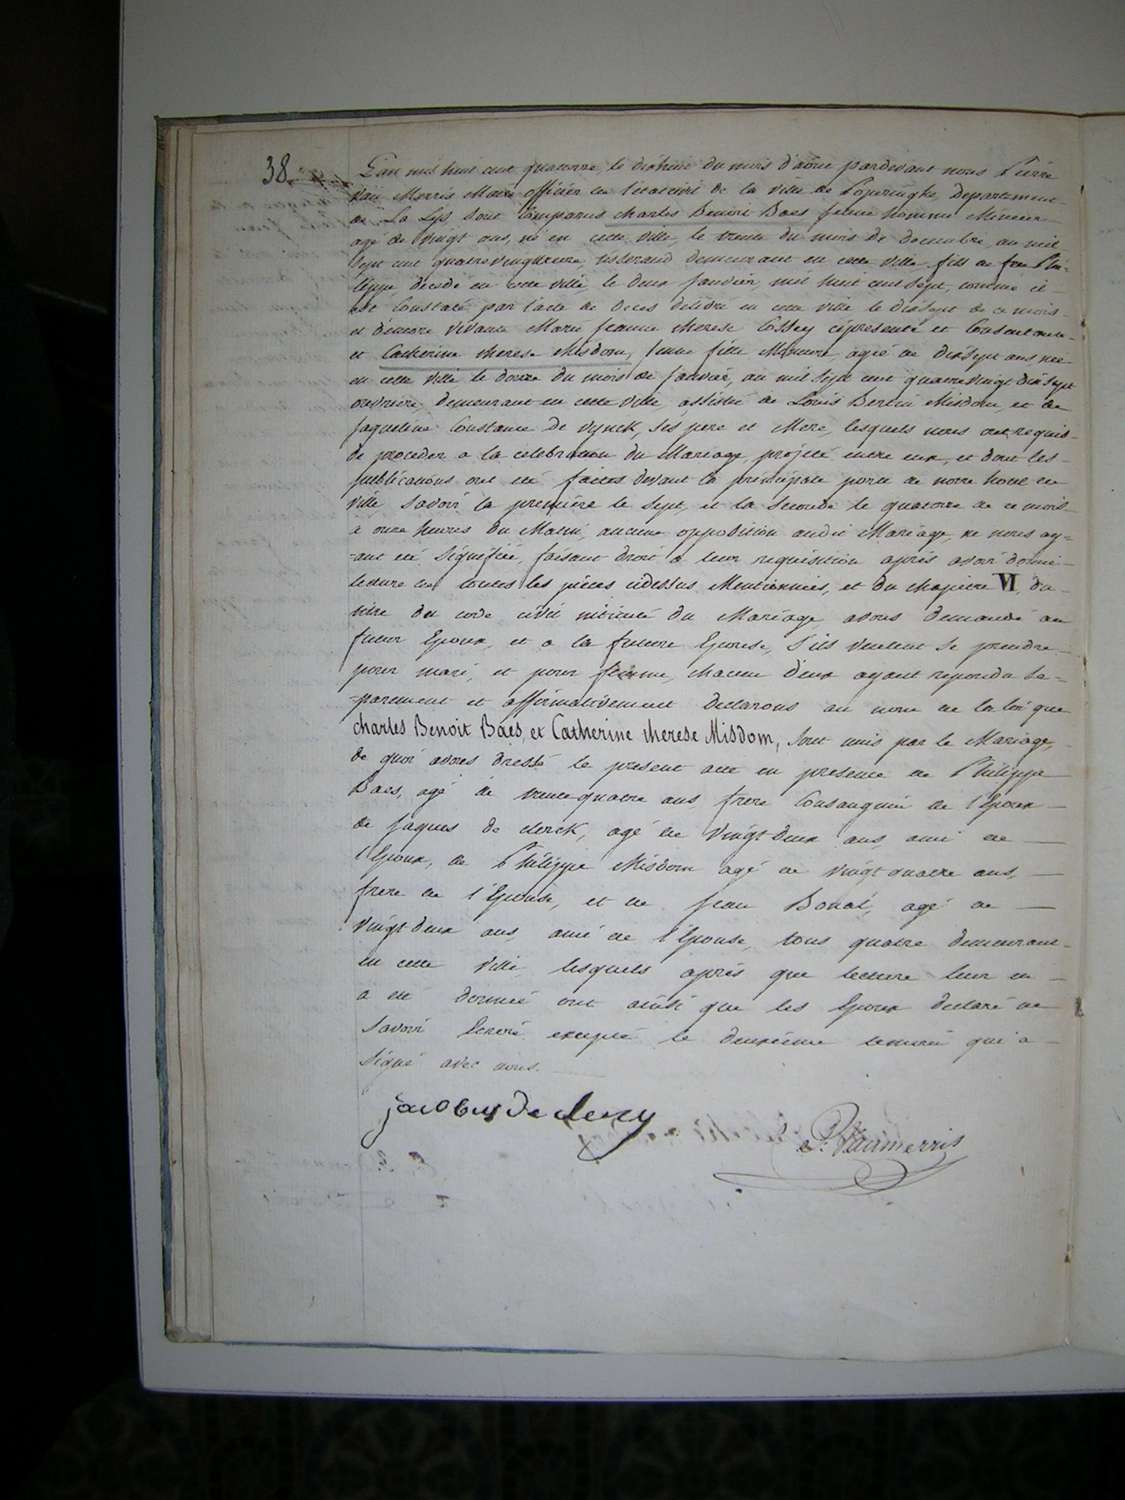 38.
L'an mil huit cent quatorze, le dixhuit du mois d'aôut pardevant nous Pierre
Van Merris Maire officier de l'état civil de la ville de Poperinghe Departement
de La Lys sont comparus charles Benoit Baes jeune homme Mineur
agé de vingt ans, né en cette ville, le trente du mois de decembre, an mil
sept cent quatre vingt treize tisserand demeurant en cette ville fils de feu Phi-
lippe decedé en cette ville le deux Janvier, mil huit cent sept, comme il
est Constaté par l'acte de Deces delivré en cette ville le dixsept de ce mois
et d'encore vivante Marie Jeanne therese Cossey cépresente et Consentante
et Catherine therese Misdom, jeune fille Mineure, agée de dixsept ans née
en cette ville le douze du mois de Janvier, an mil sept cent quatrevingt dixsept
ouvriere demeurant en cette ville, assistée de Louis Bertin Misdom, et de
Jaqueline Constance de Vynck, ses pere et Mere, lesquels nous ont requis
de proceder a la celebration du Mariage projeté entre eux, et dont les
publications ont été faites devant la principale porte de notre hotel de
ville savoir la première le sept, et la seconde le quatorze de ce mois
à onze heures du Matin, aucune opposition audit Mariage ne nous ay-
-ant été signifiée, faisant droit a leur requisition après avoir donné
lecture de toutes les pièces cidessus Mentionnées, et du chapitre VI, du
titre du code civil intitulé du Mariage avons demandé au
futur Epoux, et a la future Epouse, s'ils veulent se prendre
pour mari, et pour femme, chacun d'eux ayant repondu se-
-parement et affirmativement declarons au nom de la loi que
charles Benoit Baes, et Catherine therese Misdom, sont unis par le Mariage,
de quoi avons dressé le present acte en presence de Philippe
Baes, agé de trente quatre ans frere Consanguin de l'Epoux
de Jaques de clerck, agé de vingt deux ans, ami de
l'Epoux, de Philippe Misdom agé de vingt quatre ans,
frere de l'Epouse, et de Jean agé de
vingt deux ans, ami de l'Epouse, tous quatre demeurant
en cette ville lesquels après que lecture leur en
a été donnée ont ainsi que les Epoux declaré ne
savoir Ecrire excepté le deuxième temoin qui a
signé avec nous.
jacobus de clercq
P. Vanmerris